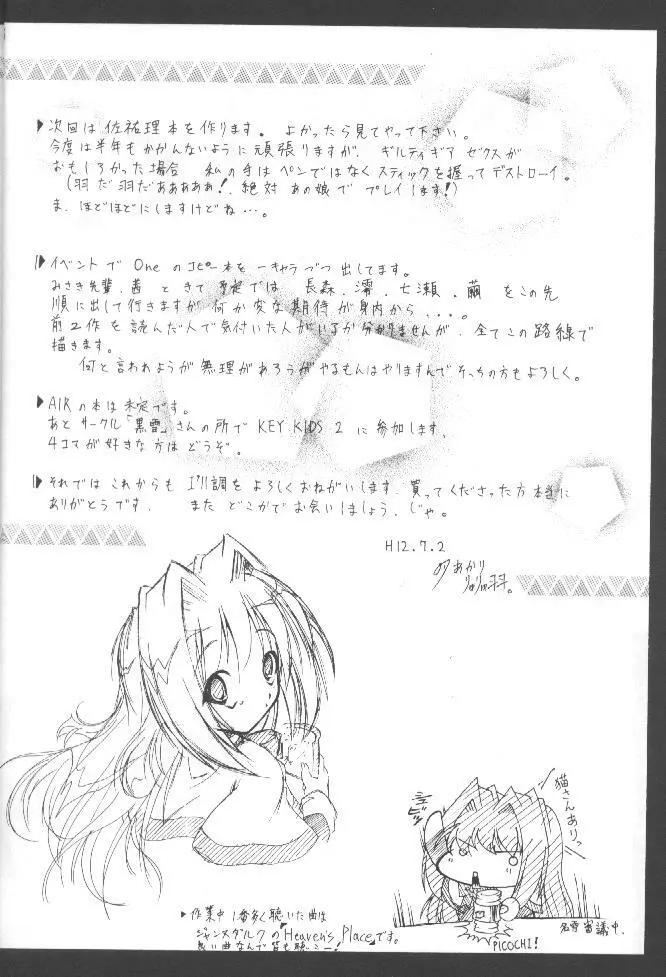 ▶次回は佐祐理本を作ります。よかったら見てやって下さい。
今度は半年もかかんないように頑張りますが、ギルティギア ゼクスが
おもしろかった場合 私の手はペンではなくスティックを握ってデストローイ。
(羽だ羽だあああああ!絶対あの娘でプレイします!)
ま、ほどほどにしますけどね…。
▶イベントで Oneのコピー本を一キャラづつ出してます。
みさき先輩、茜ときて予定では、長森、澪、七瀬、繭をこの先
順に出して行きますが何か変な期待が身内から...。
前2作を読んだ人で気付いた人がいるか分かりませんが、全てこの路線で
描きます。
何と言われようが無理があろうがやるもんはやりますんでそっちの方もよろしく。
▶AIRの本は未定です。
あとサークル「黒雪」さんの所で KEY KIDS 2 に参加します。
4コマが好きな方はどうぞ。
▶それではこれからも I'll調をよろしくおねがいします。買ってくださった方本当に
ありがとうです。 また どこかで お会いしましょう。じゃ。
H12.7.2
猫さんありっ
PICOCHI!
名雪審議中.
▶作業中1番多く聴いた曲は
ジャンヌダルクの「Heaven's Place」です。
良い曲なんで皆も聴こー!